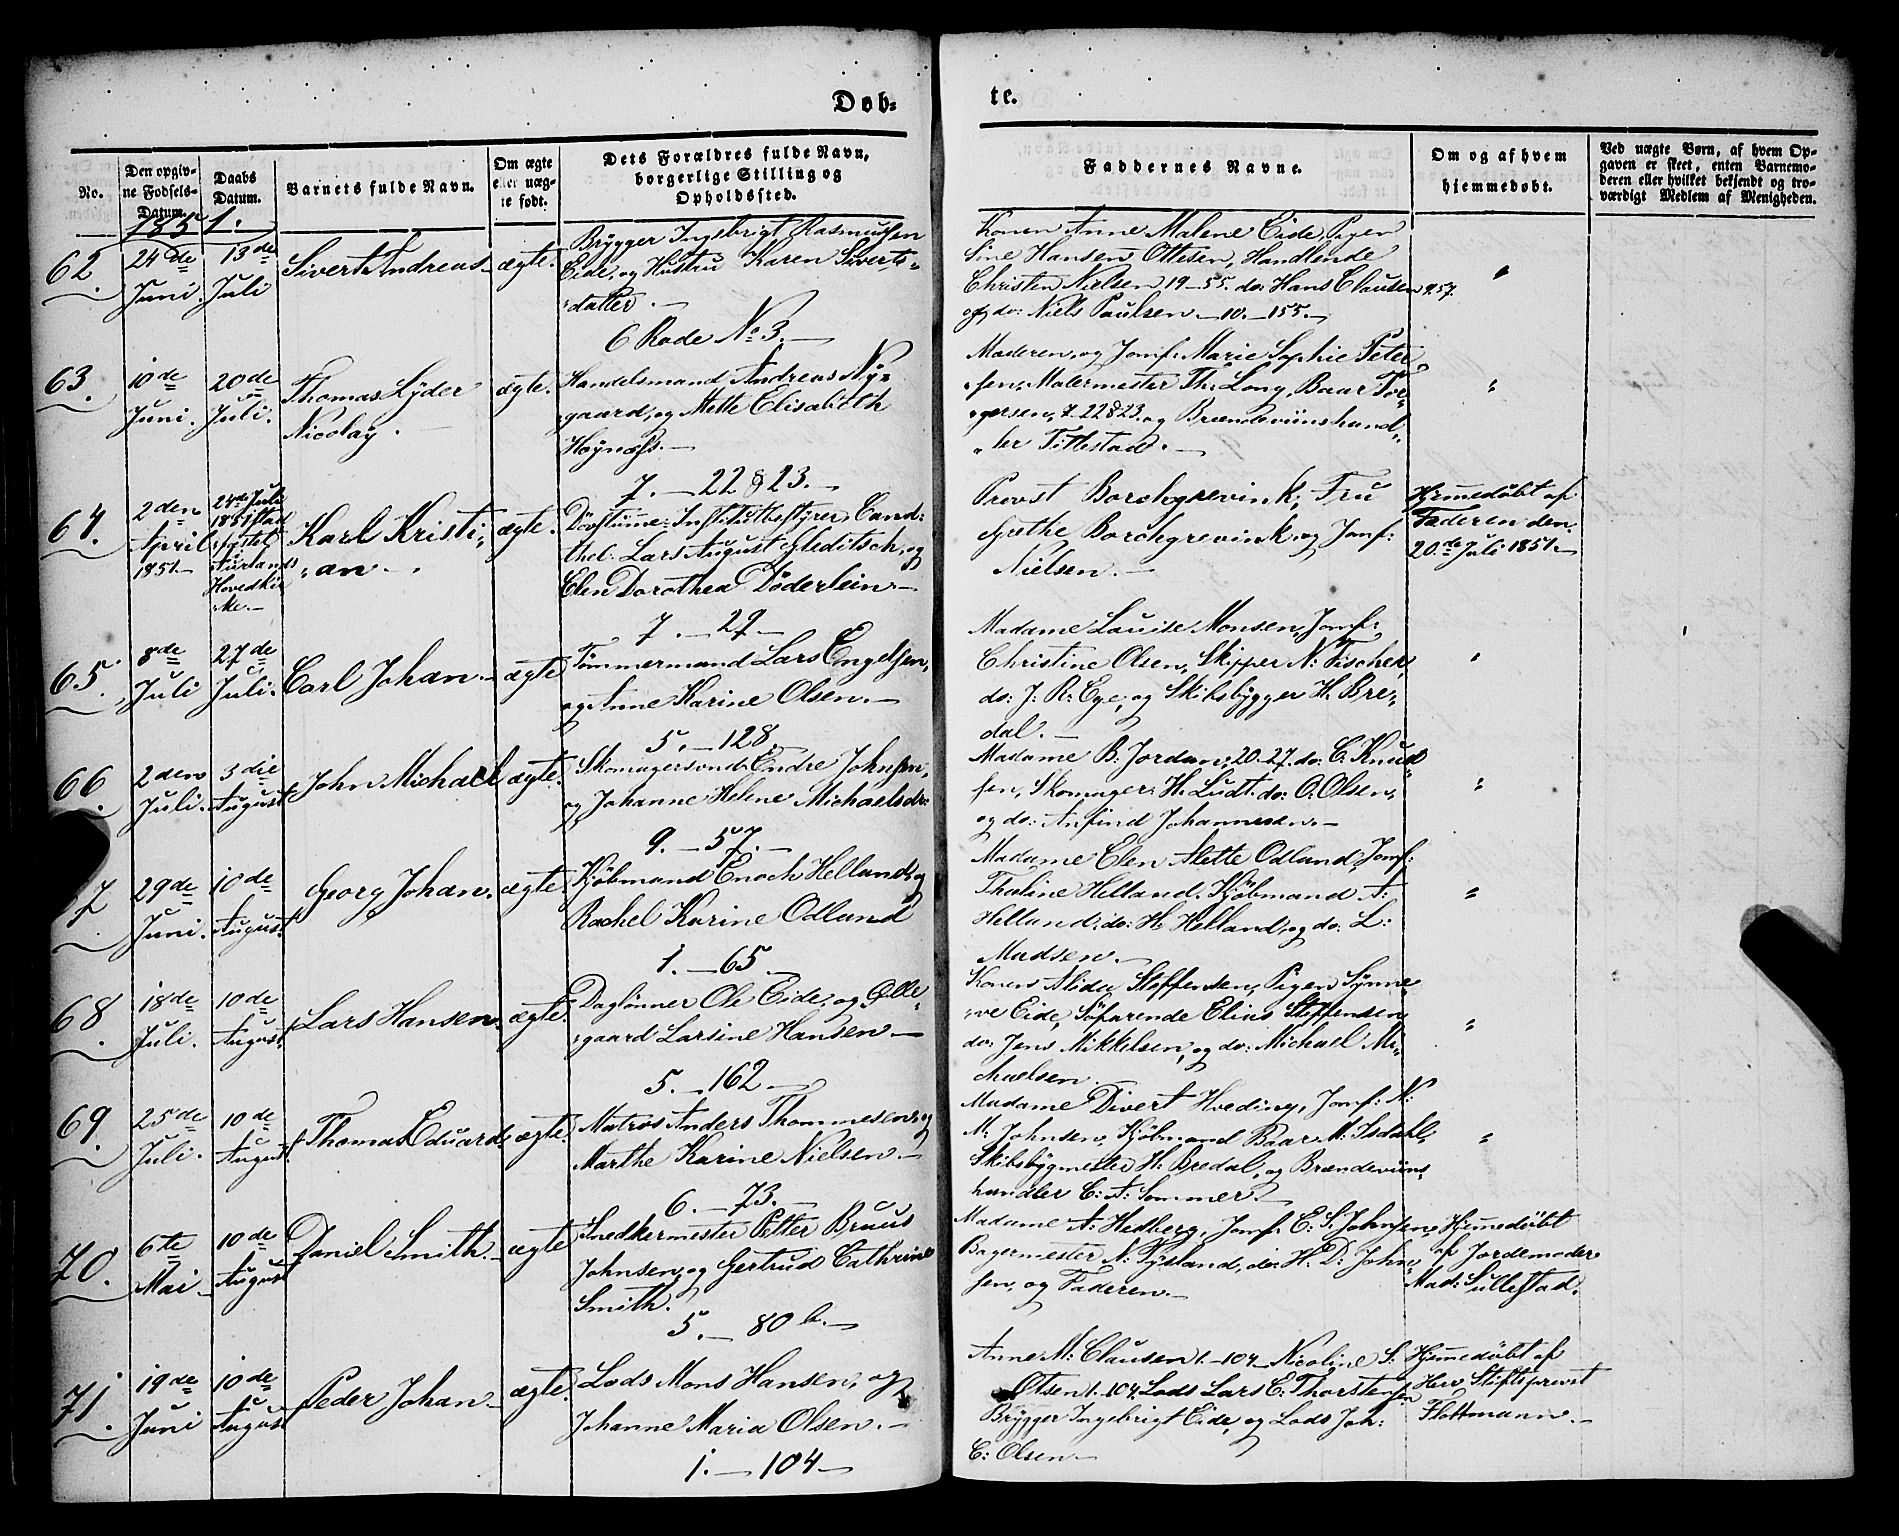 Døb=
te.
No.
Den opgiv-
ne Fødsels-
Datum.
Daabs
Datum.
Barnets fulde Navn.
Om ægte
eller uæg-
te født.
Dets Forældres fulde Navn,
borgerlige Stilling og
Opholdssted.
Faddernes Navne.
Om og af hvem
hjemmedøbt.
Ved uægte Børn, af hvem Op-
gaven er skeet, enten Barnemo-
deren eller hvilket bekjendt og tro-
værdigt Medlem af Menigheden.
1851.
62.
24de
Juni.
13de
Juli
Sivert Andreas
ægte.
Brygger Ingebrigt Rasmussen
Eide, og Hustru Karen Siverts-
datter.
6 Rode No 3.
Konen Anne Malene Eide, Pigen
Sine Hansen Ottesen, Handlende
Christen Nielsen 19-55. do: Hans Clausen 9.57.
og do: Niels Paulsen. 10.-155.
"
63.
10de
Juni.
20de
Juli.
Thomas Lyder
Nicolay.
ægte.
Handelsmand Andreas Ny-
gaard, og Mette Elisabeth
Høynæss.
7.-22 & 23.
Moderen, og Jomf: Marie Sophie Peter-
sen, Malermester Th: Long, Baar Tor-
gersen, 7.22&23. og Brændeviinshand-
ler Tittestad.
"
64.
2den
April
1851.
24de Juli
1851 stad-
fæstet
i
Aurlands
Hovedkir-
ke.
Karl Kristi-
an
ægte.
Døvstumme-Institutbestyrer, Cand:
thel: Lars August Gleditsch, og
Elen Dorothea Døderlein
7.-29
Provst Borchgrevink, Fru
Grethe Borchgrevink og Jomf:
Nielsen.
Hjemmedøbt af
Faderen den
20de Juli 1851.
65.
8de
Juli
27de
Juli.
Carl Johan
ægte
Tømmermand Lars Engelsen,
og Anne Karine Olsen.
5.-128.
Madame Louise Monsen, Jomf:
Christine Olsen, Skipper N: Fischer,
do: J: R: Ege, og Skibsbygger H. Bre-
dal.
"
66.
2den
Juli.
3die
August
John Michael
ægte.
Skomagersvend Endre Johnsen,
og Johanne Helene Michaelsdr.
9.-57.
Madame B. Jordan, 20-27. do: C. Knud-
sen, Skomager H. Ludt. do: O. Olsen,
og do: Anfind Johannesen.
"
7
29de
Juni.
10de
August
Georg Johan.
ægte.
Kjøbmand Enoch Helland, og
Rachel Karine Odland
1.-65.
Madame Elen Alette Odland, Jomf:
Thaline Helland, Kjøbmand A:
Helland, do: H. Helland, og do: L:
Madsen.
"
68.
18de
Juli.
10de
August.
Lars Hansen.
ægte.
Daglønner Ole Eide, og Olle-
gaard Larsine Hansen
5.-162
Konen Alida Steffensen, Pigen Synne-
ve Eide, Søfarende Elias Steffensen
do: Jens Mikkelsen, og do: Michael Mi-
chaelsen.
"
69.
25de
Juli.
10de
August.
Thomas Eduard
ægte.
Matros Anders Thommesen, og
Marthe Karine Nielsen
6.-73.
Madame Divert Hveding, Jomf: N:
M: Johnsen, Kjøbmand Baar M. Isdahl,
Skibsbygmester H. Bredal, og Brændeviins-
handler C: A: Sommer.
"
70.
6te
Mai
10de
August
Daniel Smith.
ægte
Snedkermester Petter Bruus
Johnsen, og Gertrud Cathrine
Smith.
5.-80 b.
Madame A: Hedberg, Jomf: E: S: Johnsen,
Bagermester N: Tysland, do: H: D: John-
sen, og Faderen.
Hjemmedøbt
af Jordemoder
Mad: Sullestad.
71.
19de
Juni
10de
August
Peder Johan
ægte.
Lods Mons Hansen, og
Johanne Maria Olsen.
1.-104
Anne M: Clausen 1.-104 Nicoline S:
Olsen 1.104. Lods Lars E: Thorstensen
Brygger Ingebrigt Eide, og Lods Joh:
C: Olsen
Hjemmedøbt af
Herr Stiftsprovst
Flottmann.